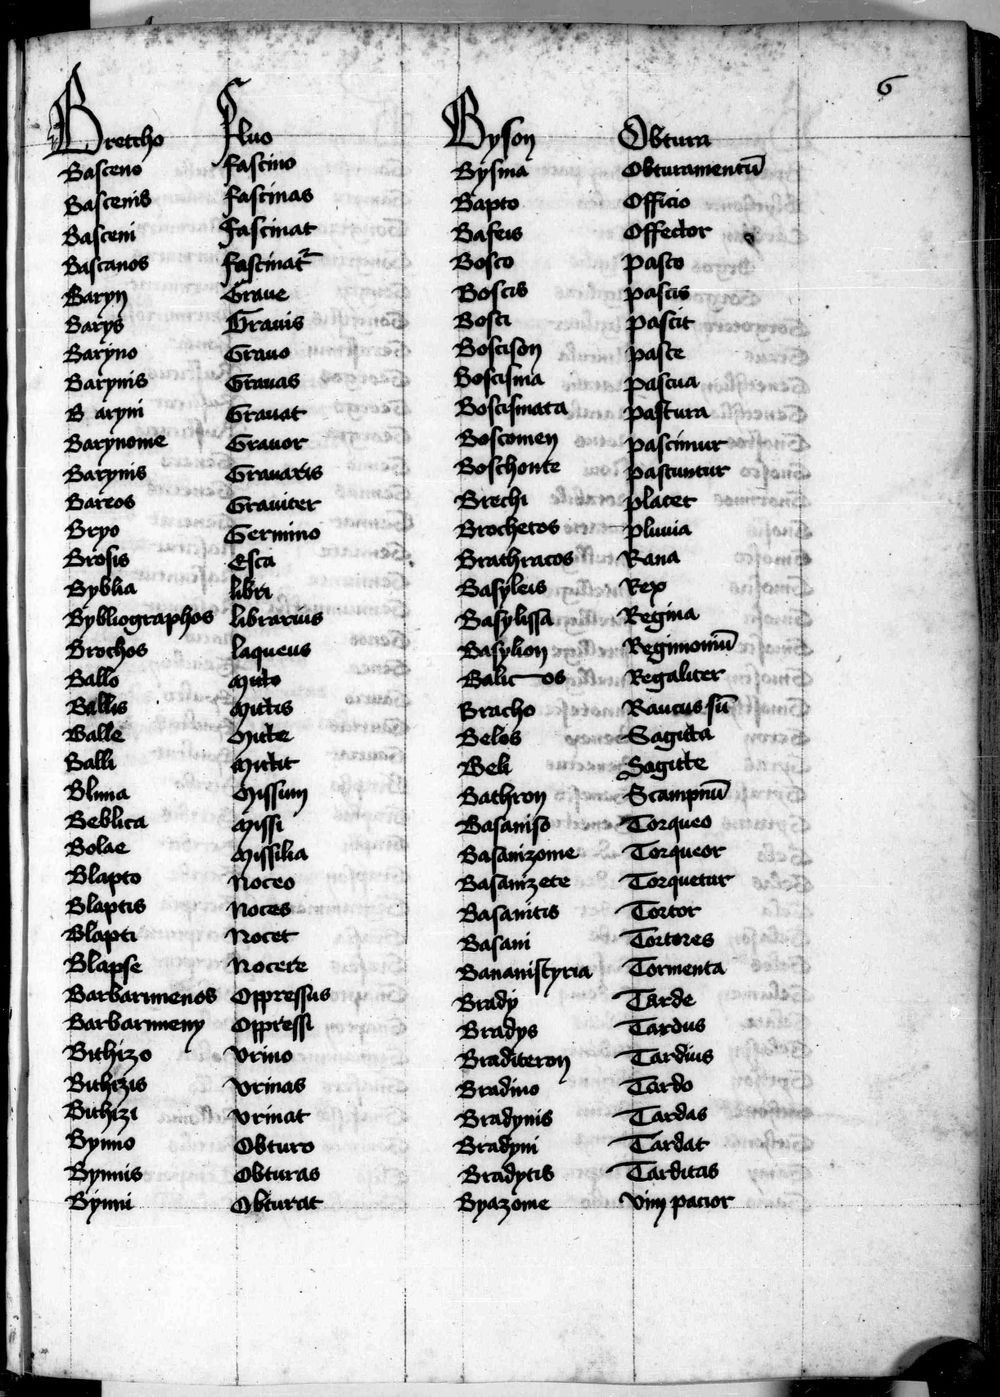 6
Bretcho Fluo
Basceno fascino
Bascenis fascinas
Basceni fascinat
Bascanos fascinat²
Baryn Graue
Barys Grauis
Baryno Grauo
Barynis Grauas
B aryni Grauat
Barynome Grauor
Barynis Grauaris
Bareos Grauiter
Bryo Germino
Brosis Esca
Byblia libri
Bybliographos librarius
Brochos laqueus
Ballo Mitto
Ballis Mittis
Balle Mitte
Balli Mittit
Blima Missum
Beblica Missi
Bolae Missilia
Blapto Noceo
Blaptis Noces
Blapti Nocet
Blapse Nocete
Barbarimenos Oppressus
Barbarimeny Oppressi
Bithizo Vrino
Bithizis Vrinas
Bithizi Vrinat
Bynno Obturo
Bynnis Obturas
Bynni Obturat
Byson Obtura
Bysma Obturamentū
Bapto Officio
Bafeis Offector
Bosco Pasco
Boscis Pascis
Bosci Pascit
Boscison Pasce
Boscisma Pascua
Boscismata Pastura
Boscomen Pascimur
Boschonte Pascuntur
Brechi Placet
Brochetos Pluuia
Brathracos Rana
Basyleis Rex
Basylissa Regina
Basylion Regimoniū
Balic—os Regaliter
Bracho Raucus sū
Belos Sagitta
Beli Sagitte
Bathron Scampnū
Basaniso Torqueo
Basanizome Torqueor
Basanizete Torquetur
Basanitis Tortor
Basani Tortores
Bananistyria Tormenta
Brady Tarde
Bradys Tardus
Braditeron Tardius
Bradino Tardo
Bradynis Tardas
Bradyni Tardat
Bradytis Tarditas
Byazome Vim pacior